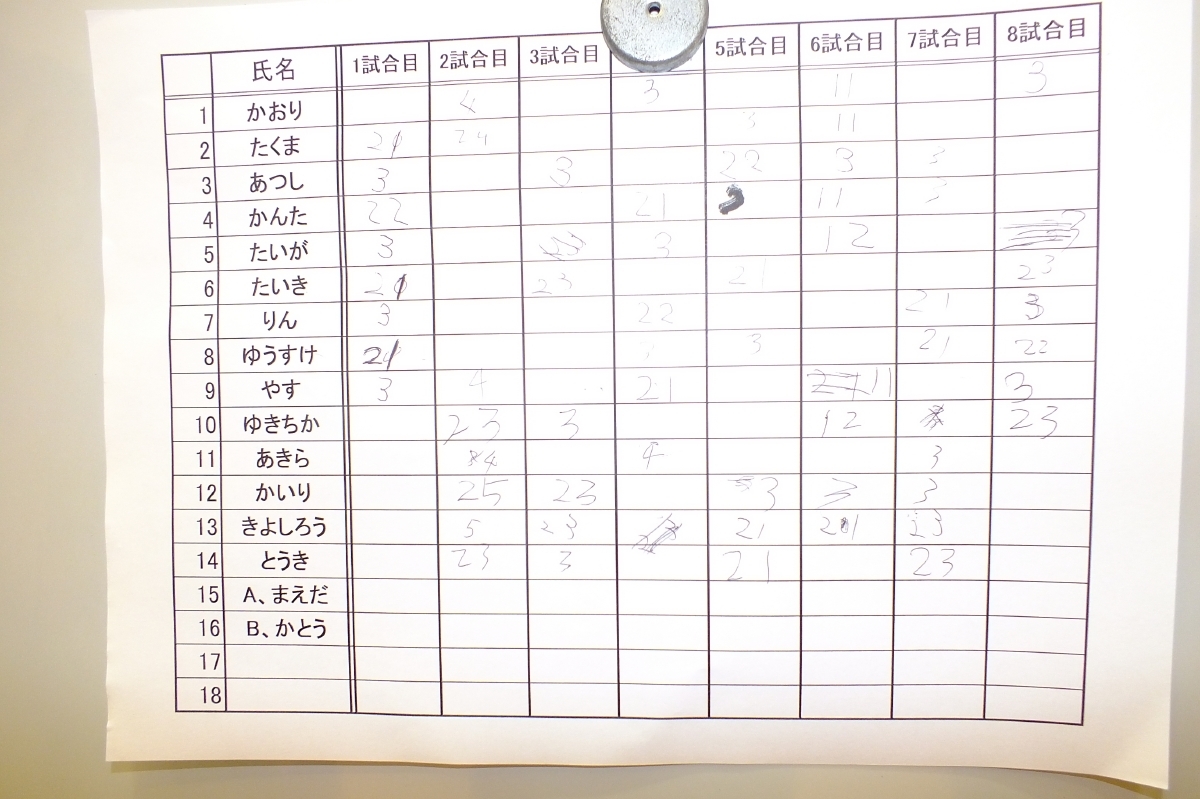 氏名 1試合目 2試合目 3試合目 5試合目 6試合目 7試合目 8試合目
1 かおり 4 3 11 3
2 たくま 21 24 3 11
3 あつし 3 3 22 3 3
4 かんた 22 21 3 11 3
5 たいが 3 3 12
6 たいき 21 23 21 23
7 りん 3 22 21 3
8 ゆうすけ 21 3 21 22
9 やす 3 4 21 11 3
10 ゆきちか 23 3 12 23
11 あきら 4 4 3
12 かいり 25 23 3 3 3
13 きよしろう 5 23 21 21 23
14 とうき 23 3 21 23
15 A、まえだ
16 B、かとう
17
18